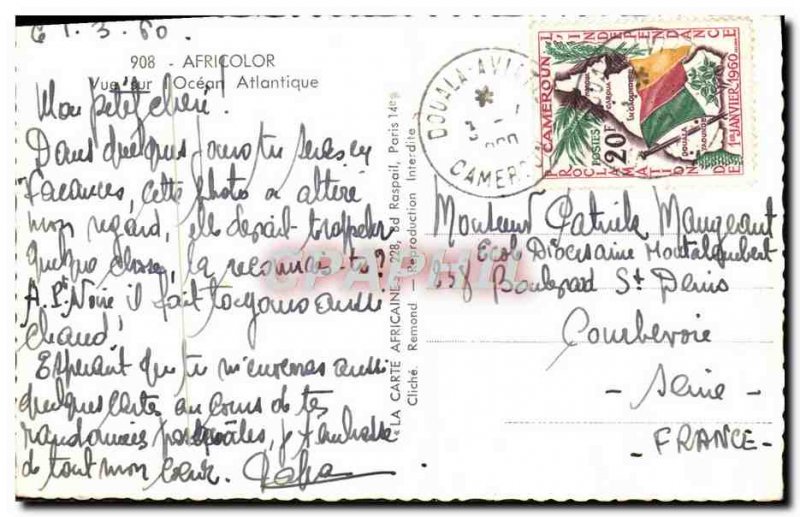 Le 1.3.60.
908 - AFRICOLOR
Vue sur l'Océan Atlantique
Mon petit chéri!
Dans quelques jours tu seras en
vacances, cette photo a attiré
mon regard, elle doit te rappeler
quelque chose, la reconnais-tu?
A Pte Noire il fait toujours aussi
chaud.
Espérant que tu m'enverras aussi
quelques cartes au cours de tes
randonnées pascales, je t'embrasse
de tout mon cœur. Papa
«LA CARTE AFRICAINE» 228, Bd Raspail, Paris 14e
Cliché. Remond - Reproduction Interdite
DOUALA-AVION
CAMEROUN
CAMEROUN
POSTES
20F
GAROUA
DOUALA
YAOUNDE
PROCLAMATION DE
L'INDEPENDANCE
1er JANVIER 1960
Monsieur Patrick Maugeant
Ecole Diocésaine Montalembert
238 Boulevard St Denis
Courbevoie
- Seine -
- FRANCE -
CPAPHIL